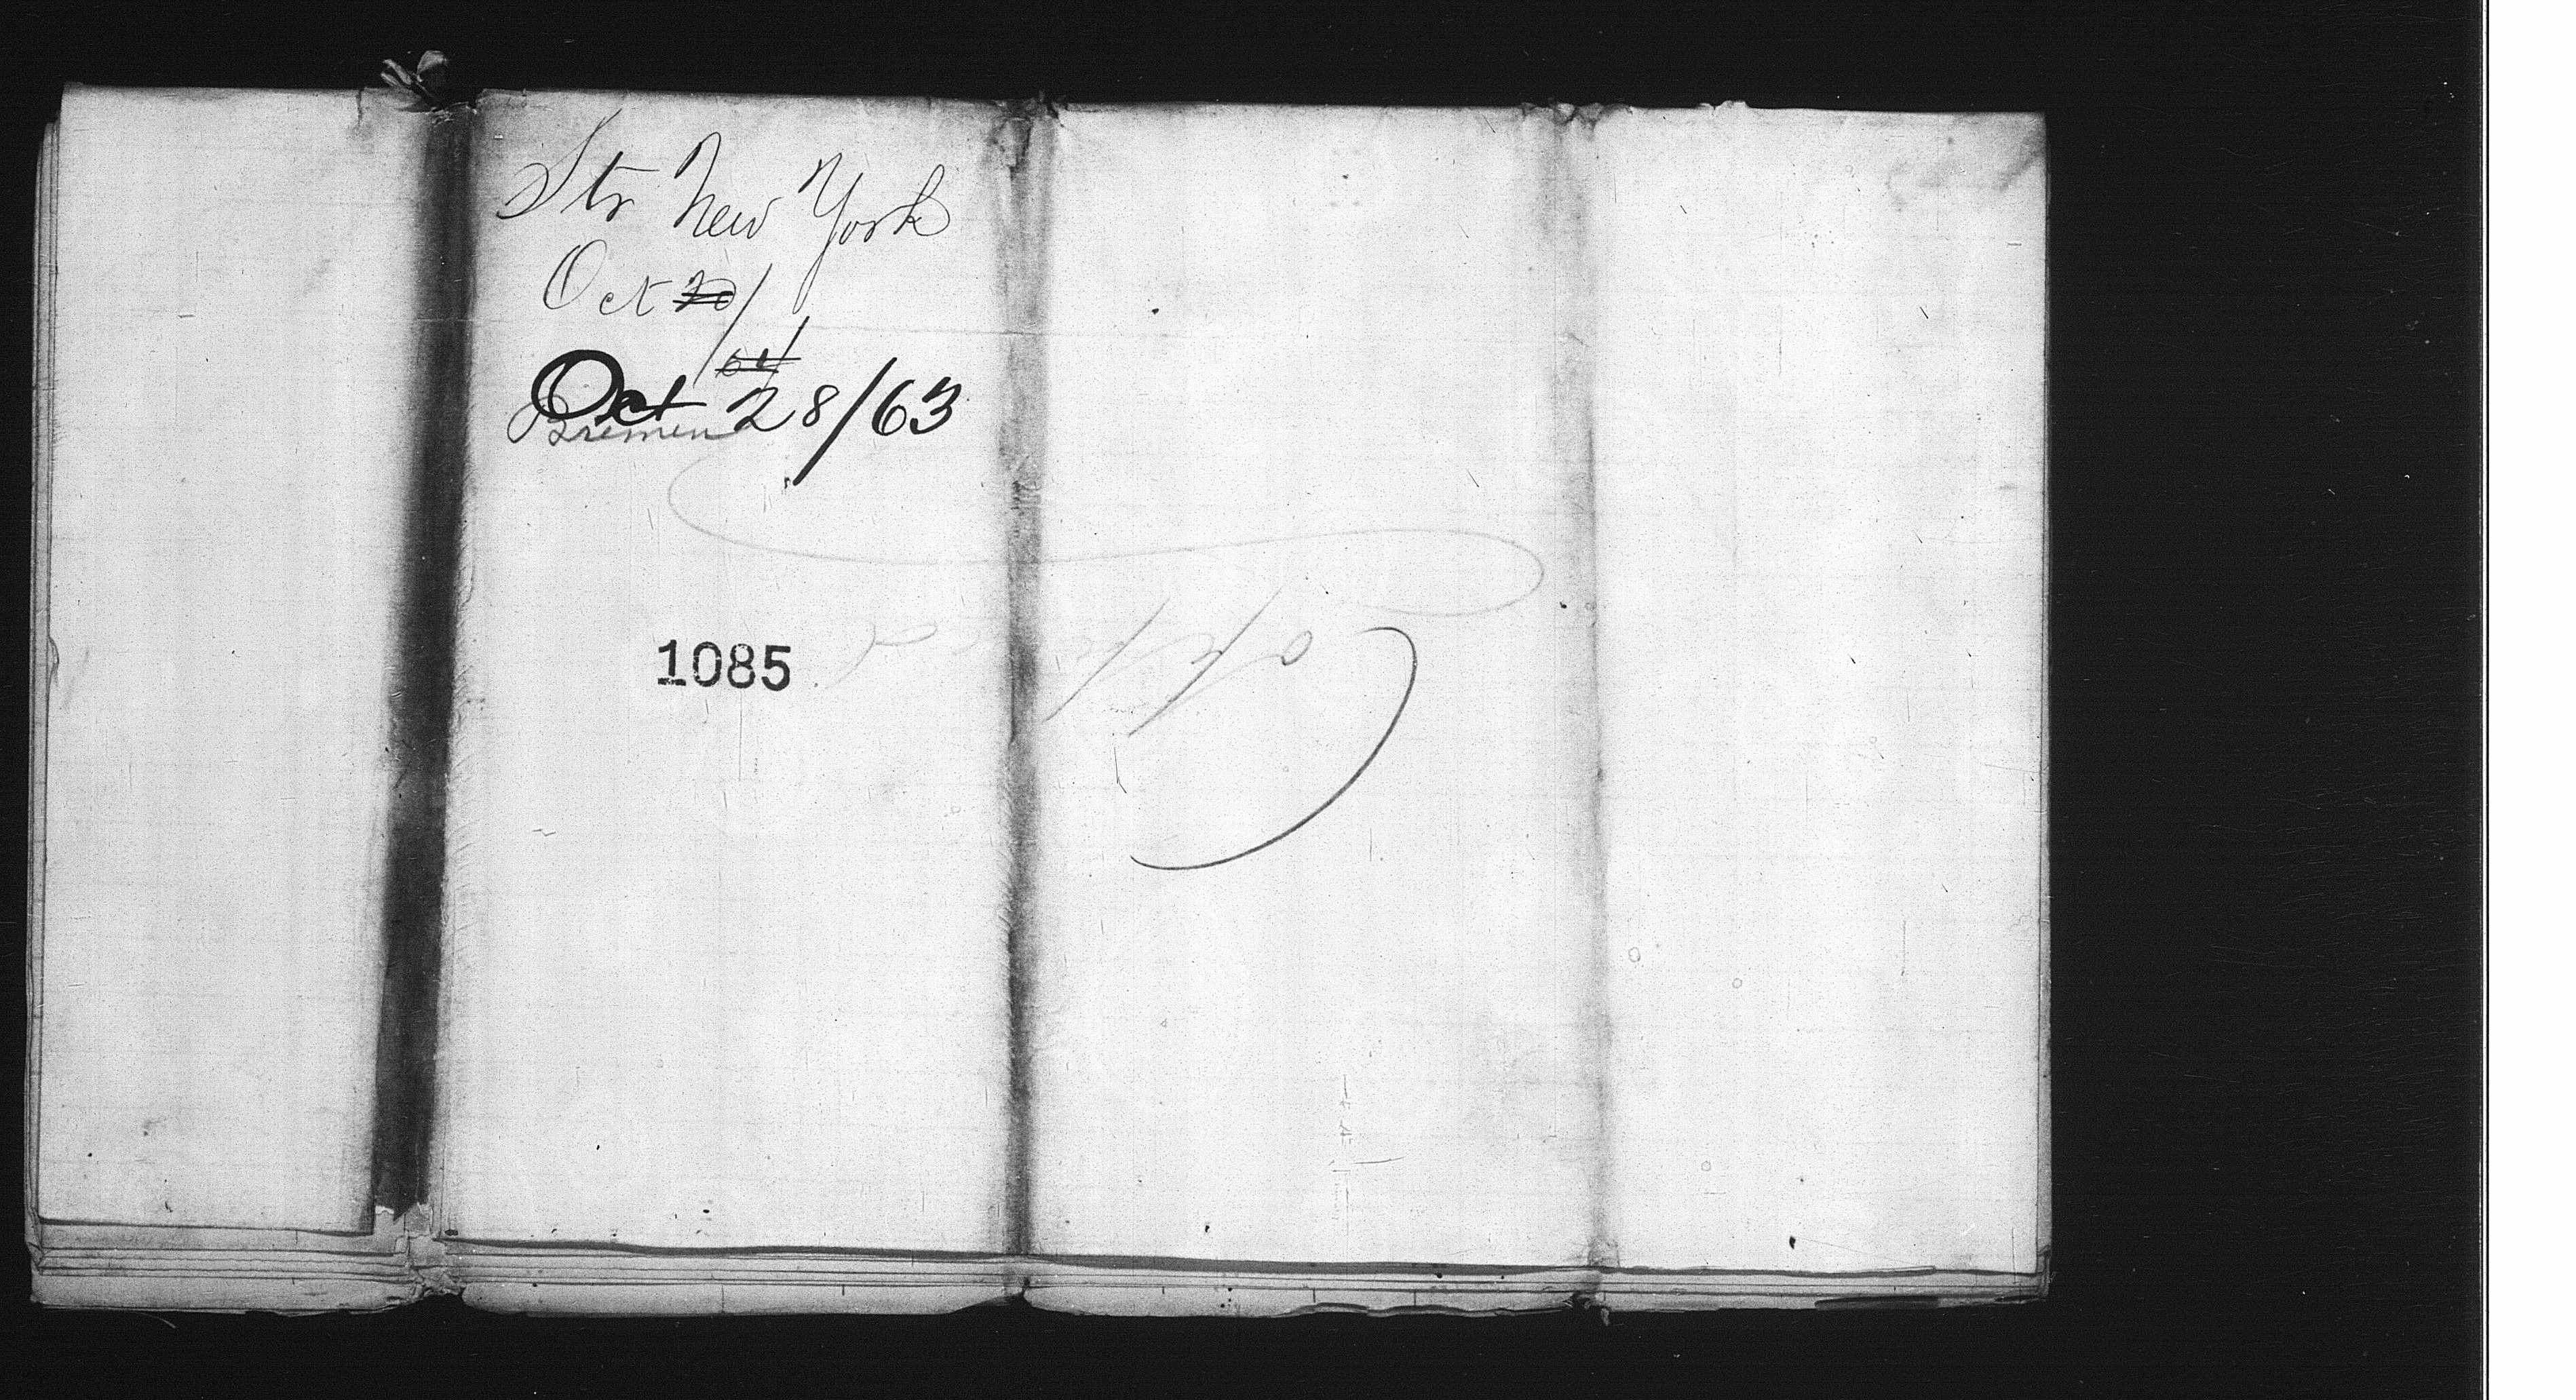 Str New York
Oct 20/
64
Oct 28/63
Bremen
1085
Copied